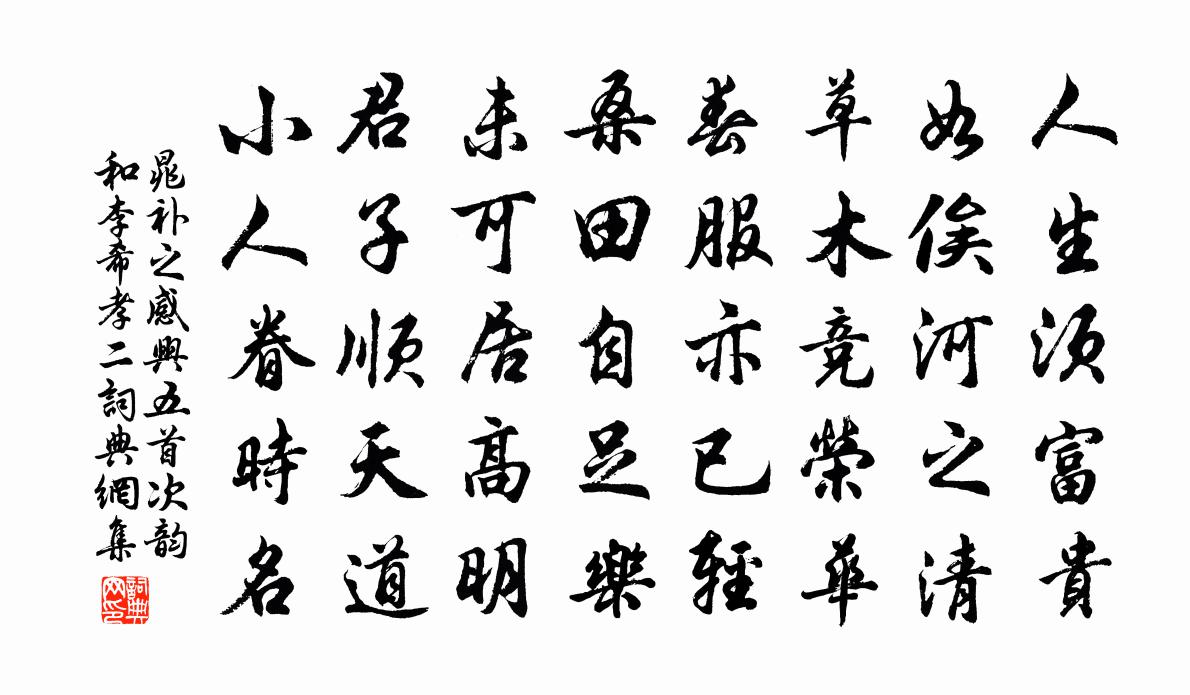 人生須富貴
如俟河之清
草木竞榮華
春服亦已輕
桑田自足樂
未可居高明
君子順天道
小人眷時名
晁补之感興五首次韵
和李希孝二詞典網集
詞典
网印